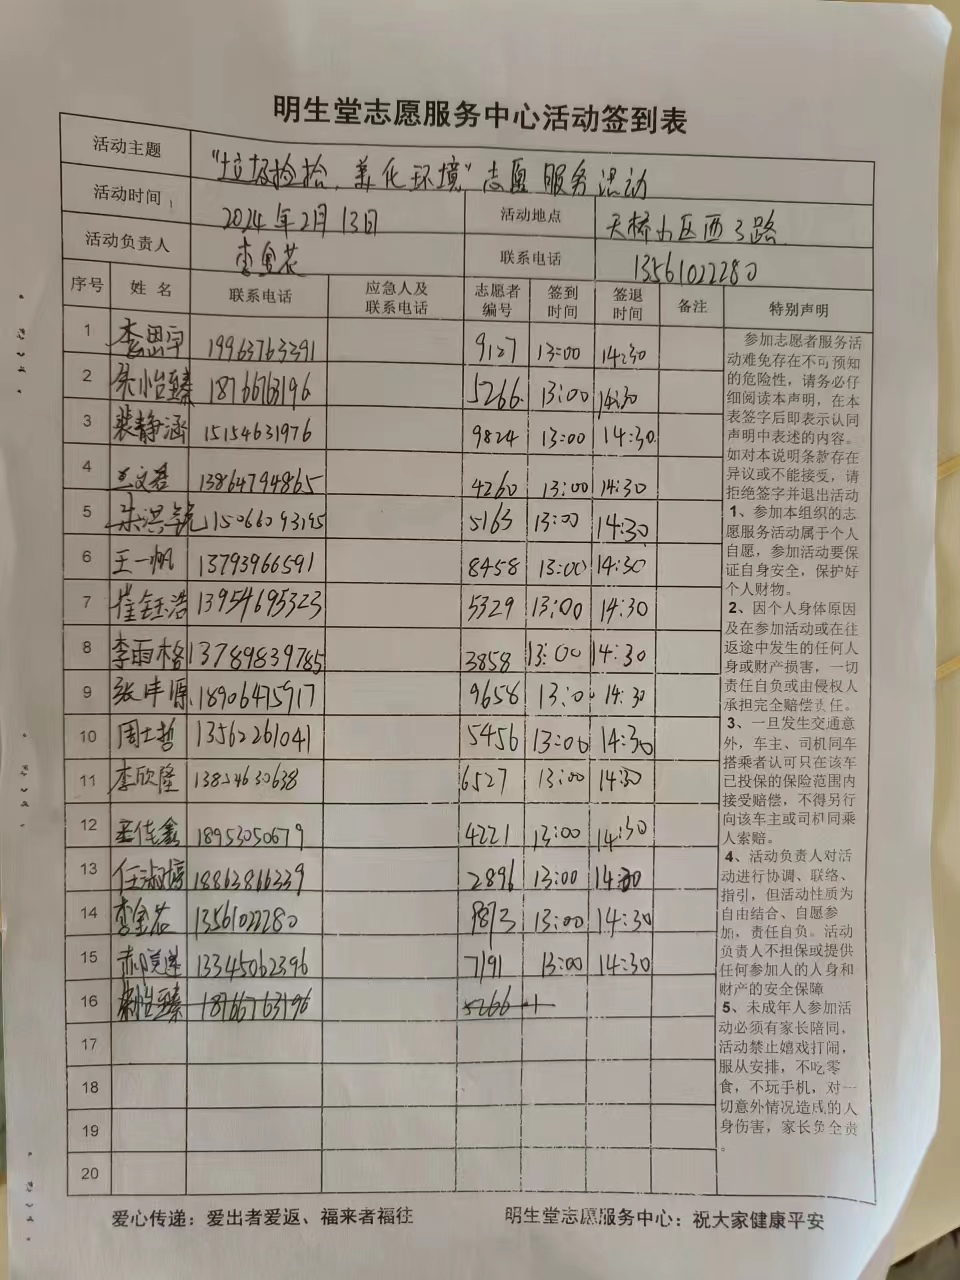 明生堂志愿服务中心活动签到表
活动主题 "垃圾捡拾、美化环境"志愿服务活动
活动时间 2024年2月13日 活动地点 天桥小区西3路
活动负责人 李金花 联系电话 13561022280
序号 姓名 联系电话 应急人及联系电话 志愿者编号 签到时间 签退时间 备注 特别声明
1 李思宇 19963763391 9127 13:00 14:30
2 怡臻 18766763196 5266 13:00 14:30
3 裴静涵 15154631976 9824 13:00 14:30
4 文 13864794865 4260 13:00 14:30
5 宋洪 15066093195 5163 13:00 14:30
6 王一帆 13793966591 8458 13:00 14:30
7 崔钰浩 13954695323 5329 13:00 14:30
8 李雨格 13789839785 3858 13:00 14:30
9 张沣源 18906475917 9658 13:00 14:30
10 周士哲 13562261041 5456 13:00 14:30
11 李欣隆 6527 13:00 14:30
12 佳鑫 18953050679 4221 13:00 14:30
13 任淑婷 18863866339 2896 13:00 14:30
14 李金花 13561022280 9873 13:00 14:30
15 13345062396 7191 13:00 14:30
16 怡臻 18766763196 5266
17
18
19
20
参加志愿者服务活
动难免存在不可预知
的危险性，请务必仔
细阅读本声明，在本
表签字后即表示认同
声明中表述的内容。
如对本说明条款存在
异议或不能接受，请
拒绝签字并退出活动
1、参加本组织的志
愿服务活动属于个人
自愿，参加活动要保
证自身安全，保护好
个人财物。
2、因个人身体原因
及在参加活动或在往
返途中发生的任何人
身或财产损害，一切
责任自负或由侵权人
承担完全赔偿责任。
3、一旦发生交通意
外，车主、司机同车
搭乘者认可只在该车
已投保的保险范围内
接受赔偿，不得另行
向该车主或司机同乘
人索赔。
4、活动负责人对活
动进行协调、联络、
指引，但活动性质为
自由结合、自愿参
加，责任自负。活动
负责人不担保或提供
任何参加人的人身和
财产的安全保障
5、未成年人参加活
动必须有家长陪同，
活动禁止嬉戏打闹，
服从安排，不吃零
食，不玩手机，对一
切意外情况造成的人
身伤害，家长负全责
。
爱心传递：爱出者爱返、福来者福往 明生堂志愿服务中心：祝大家健康平安